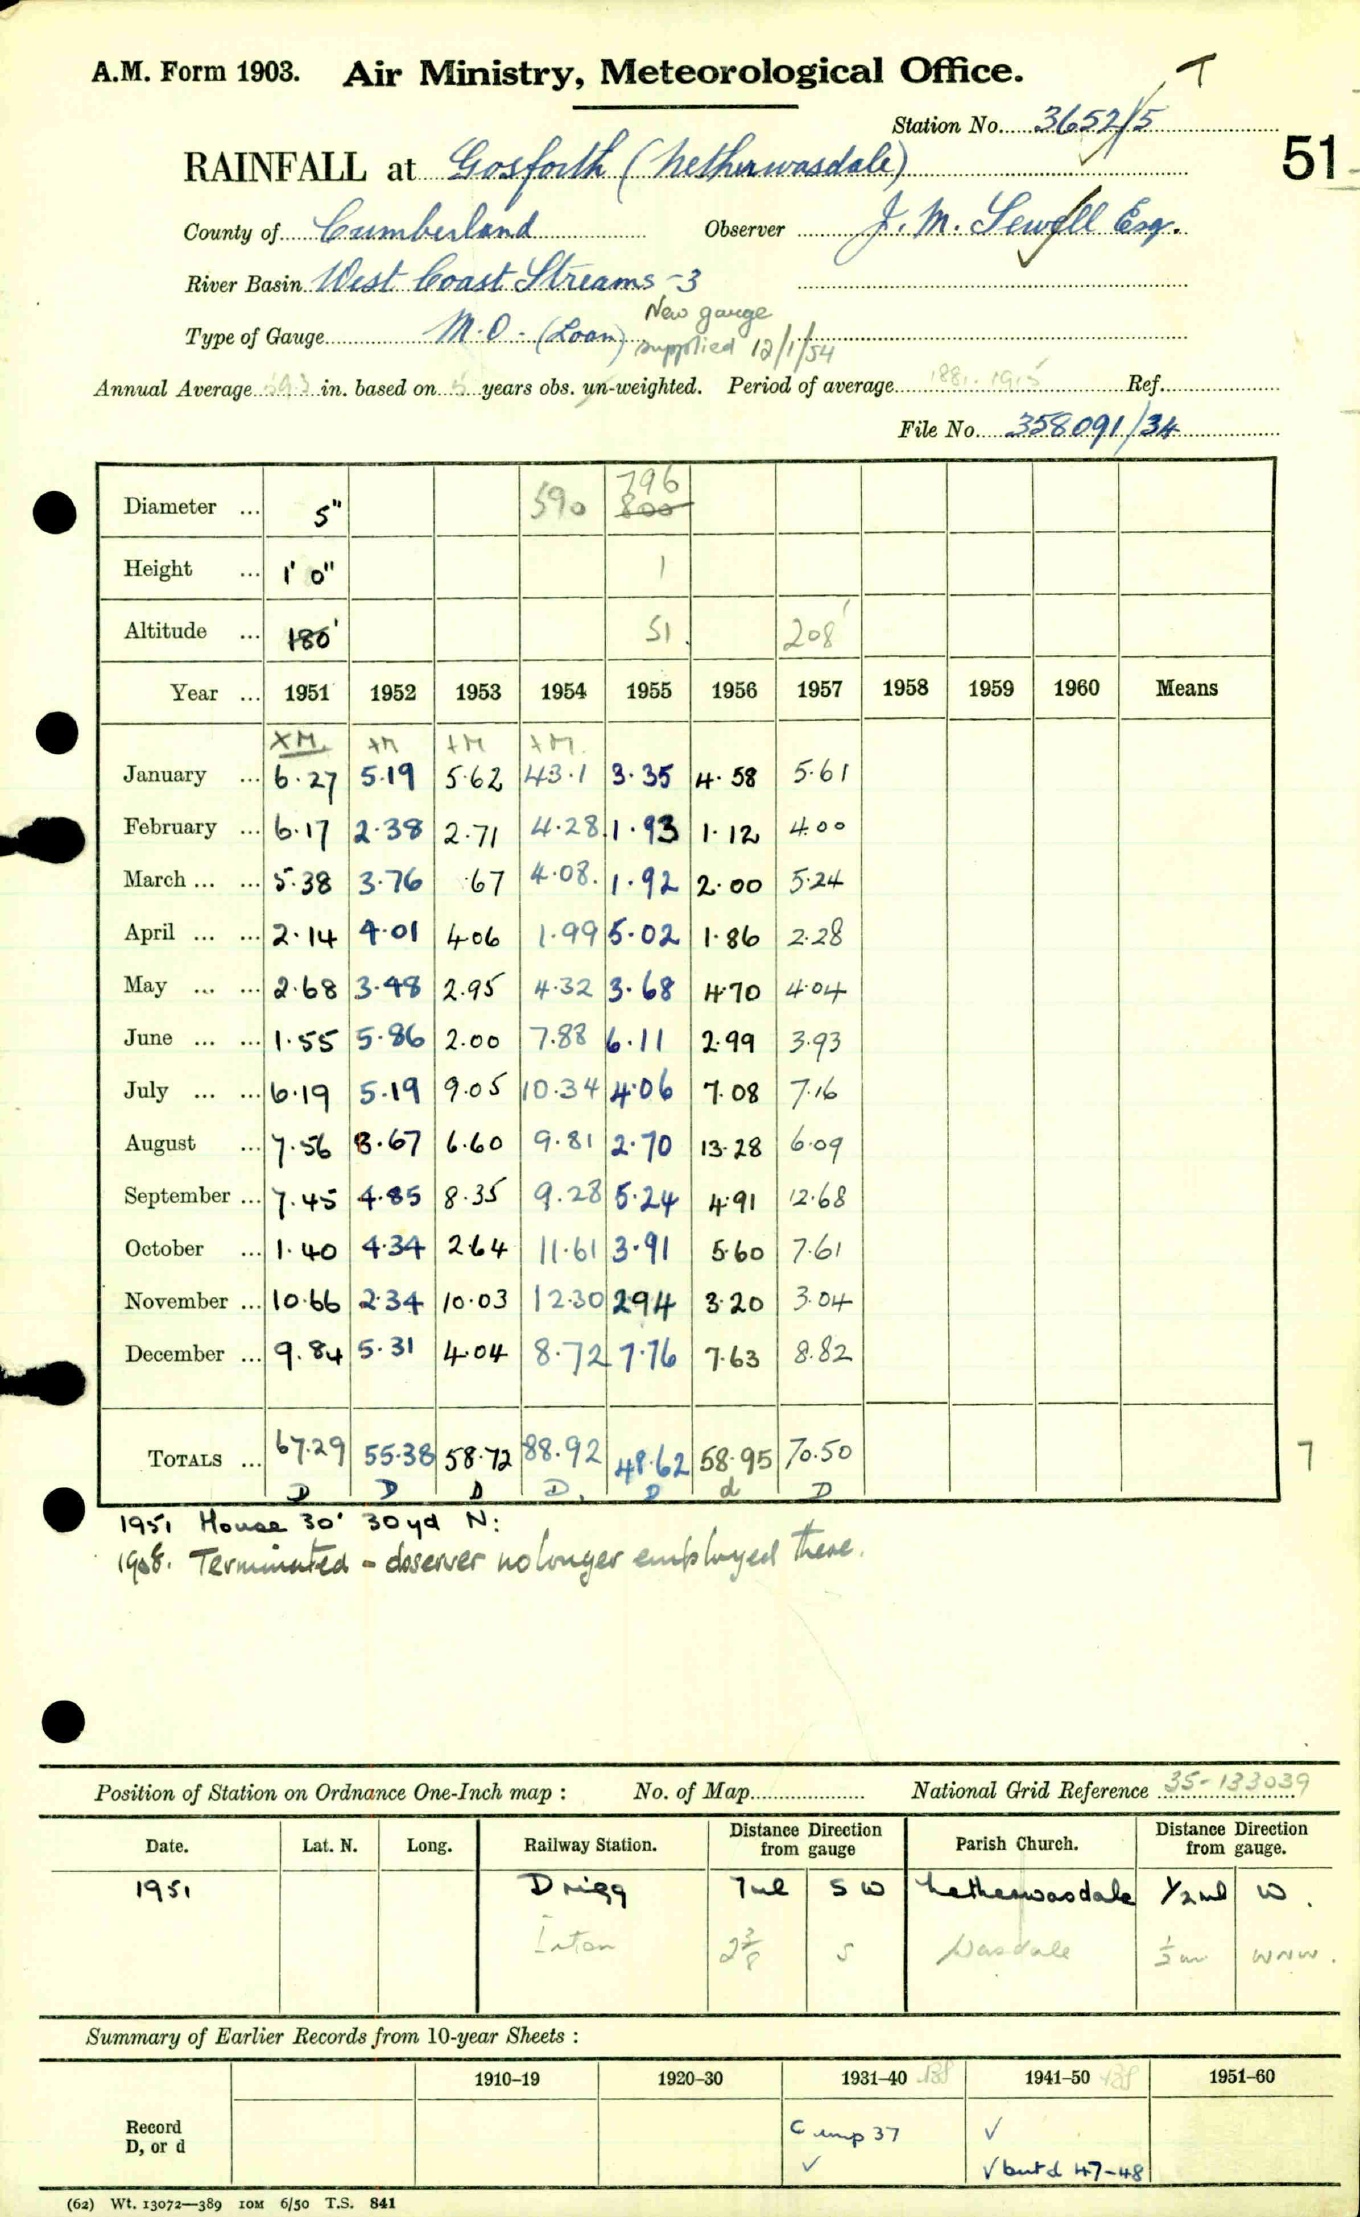 A.M. Form 1903. Air Ministry, Meteorological Office. T
Station No. 3652/5
51
RAINFALL at Gosforth (Netherwasdale)
County of Cumberland Observer J. M. Sewell Esq.
River Basin West Coast Streams -3
Type of Gauge M.O. (Loan) New gauge supplied 12/1/54
Annual Average 59.3 in. based on 5 years obs. un-weighted. Period of average 1881-1915 Ref.
File No. 358091/34
Diameter ... 5" 590 796 800
Height ... 1' 0" 1
Altitude ... 180' 51. 208'
Year ... 1951 1952 1953 1954 1955 1956 1957 1958 1959 1960 Means
XM. +M +M +M.
January ... 6.27 5.19 5.62 43.1 3.35 4.58 5.61
February ... 6.17 2.38 2.71 4.28 1.93 1.12 4.00
March ... ... 5.38 3.76 .67 4.08. 1.92 2.00 5.24
April ... ... 2.14 4.01 4.06 1.99 5.02 1.86 2.28
May ... ... 2.68 3.48 2.95 4.32 3.68 4.70 4.04
June ... ... 1.55 5.86 2.00 7.88 6.11 2.99 3.93
July ... ... 6.19 5.19 9.05 10.34 4.06 7.08 7.16
August ... 7.56 8.67 6.60 9.81 2.70 13.28 6.09
September ... 7.45 4.85 8.35 9.28 5.24 4.91 12.68
October ... 1.40 4.34 2.64 11.61 3.91 5.60 7.61
November ... 10.66 2.34 10.03 12.30 2.94 3.20 3.04
December ... 9.84 5.31 4.04 8.72 7.76 7.63 8.82
TOTALS ... 67.29 55.38 58.72 88.92 48.62 58.95 70.50 7
D D D D. D d D
1951 House 30' 30yd N:
1958. Terminated - observer no longer employed there.
Position of Station on Ordnance One-Inch map : No. of Map National Grid Reference 35-133039
Date. Lat. N. Long. Railway Station. Distance Direction from gauge Parish Church. Distance Direction from gauge.
1951 Drigg 7ml SW Netherwasdale 1/2ml W.
Irton 2 3/8 S Wasdale 1/2 m WNW.
Summary of Earlier Records from 10-year Sheets :
1910–19 1920–30 1931–40 1941–50 1951–60
Record D, or d C unp 37 ✓
✓ ✓ but d 47-48
(62) Wt. 13072—389 10M 6/50 T.S. 841